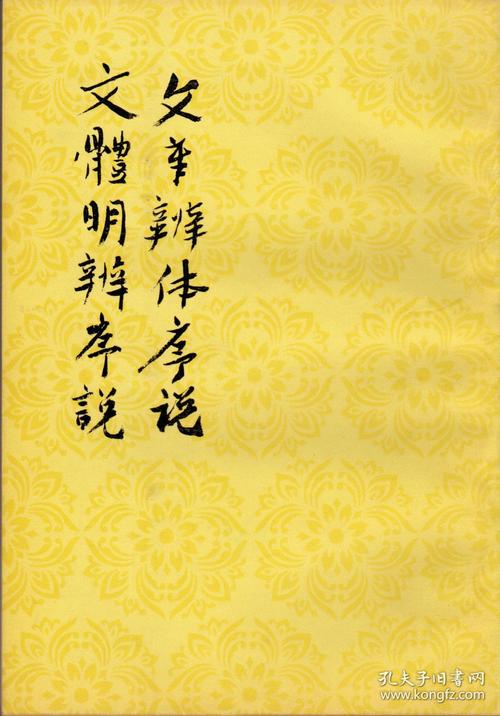 文章辨体序说
文體明辨序說
孔夫子旧书网
www.kongfz.com